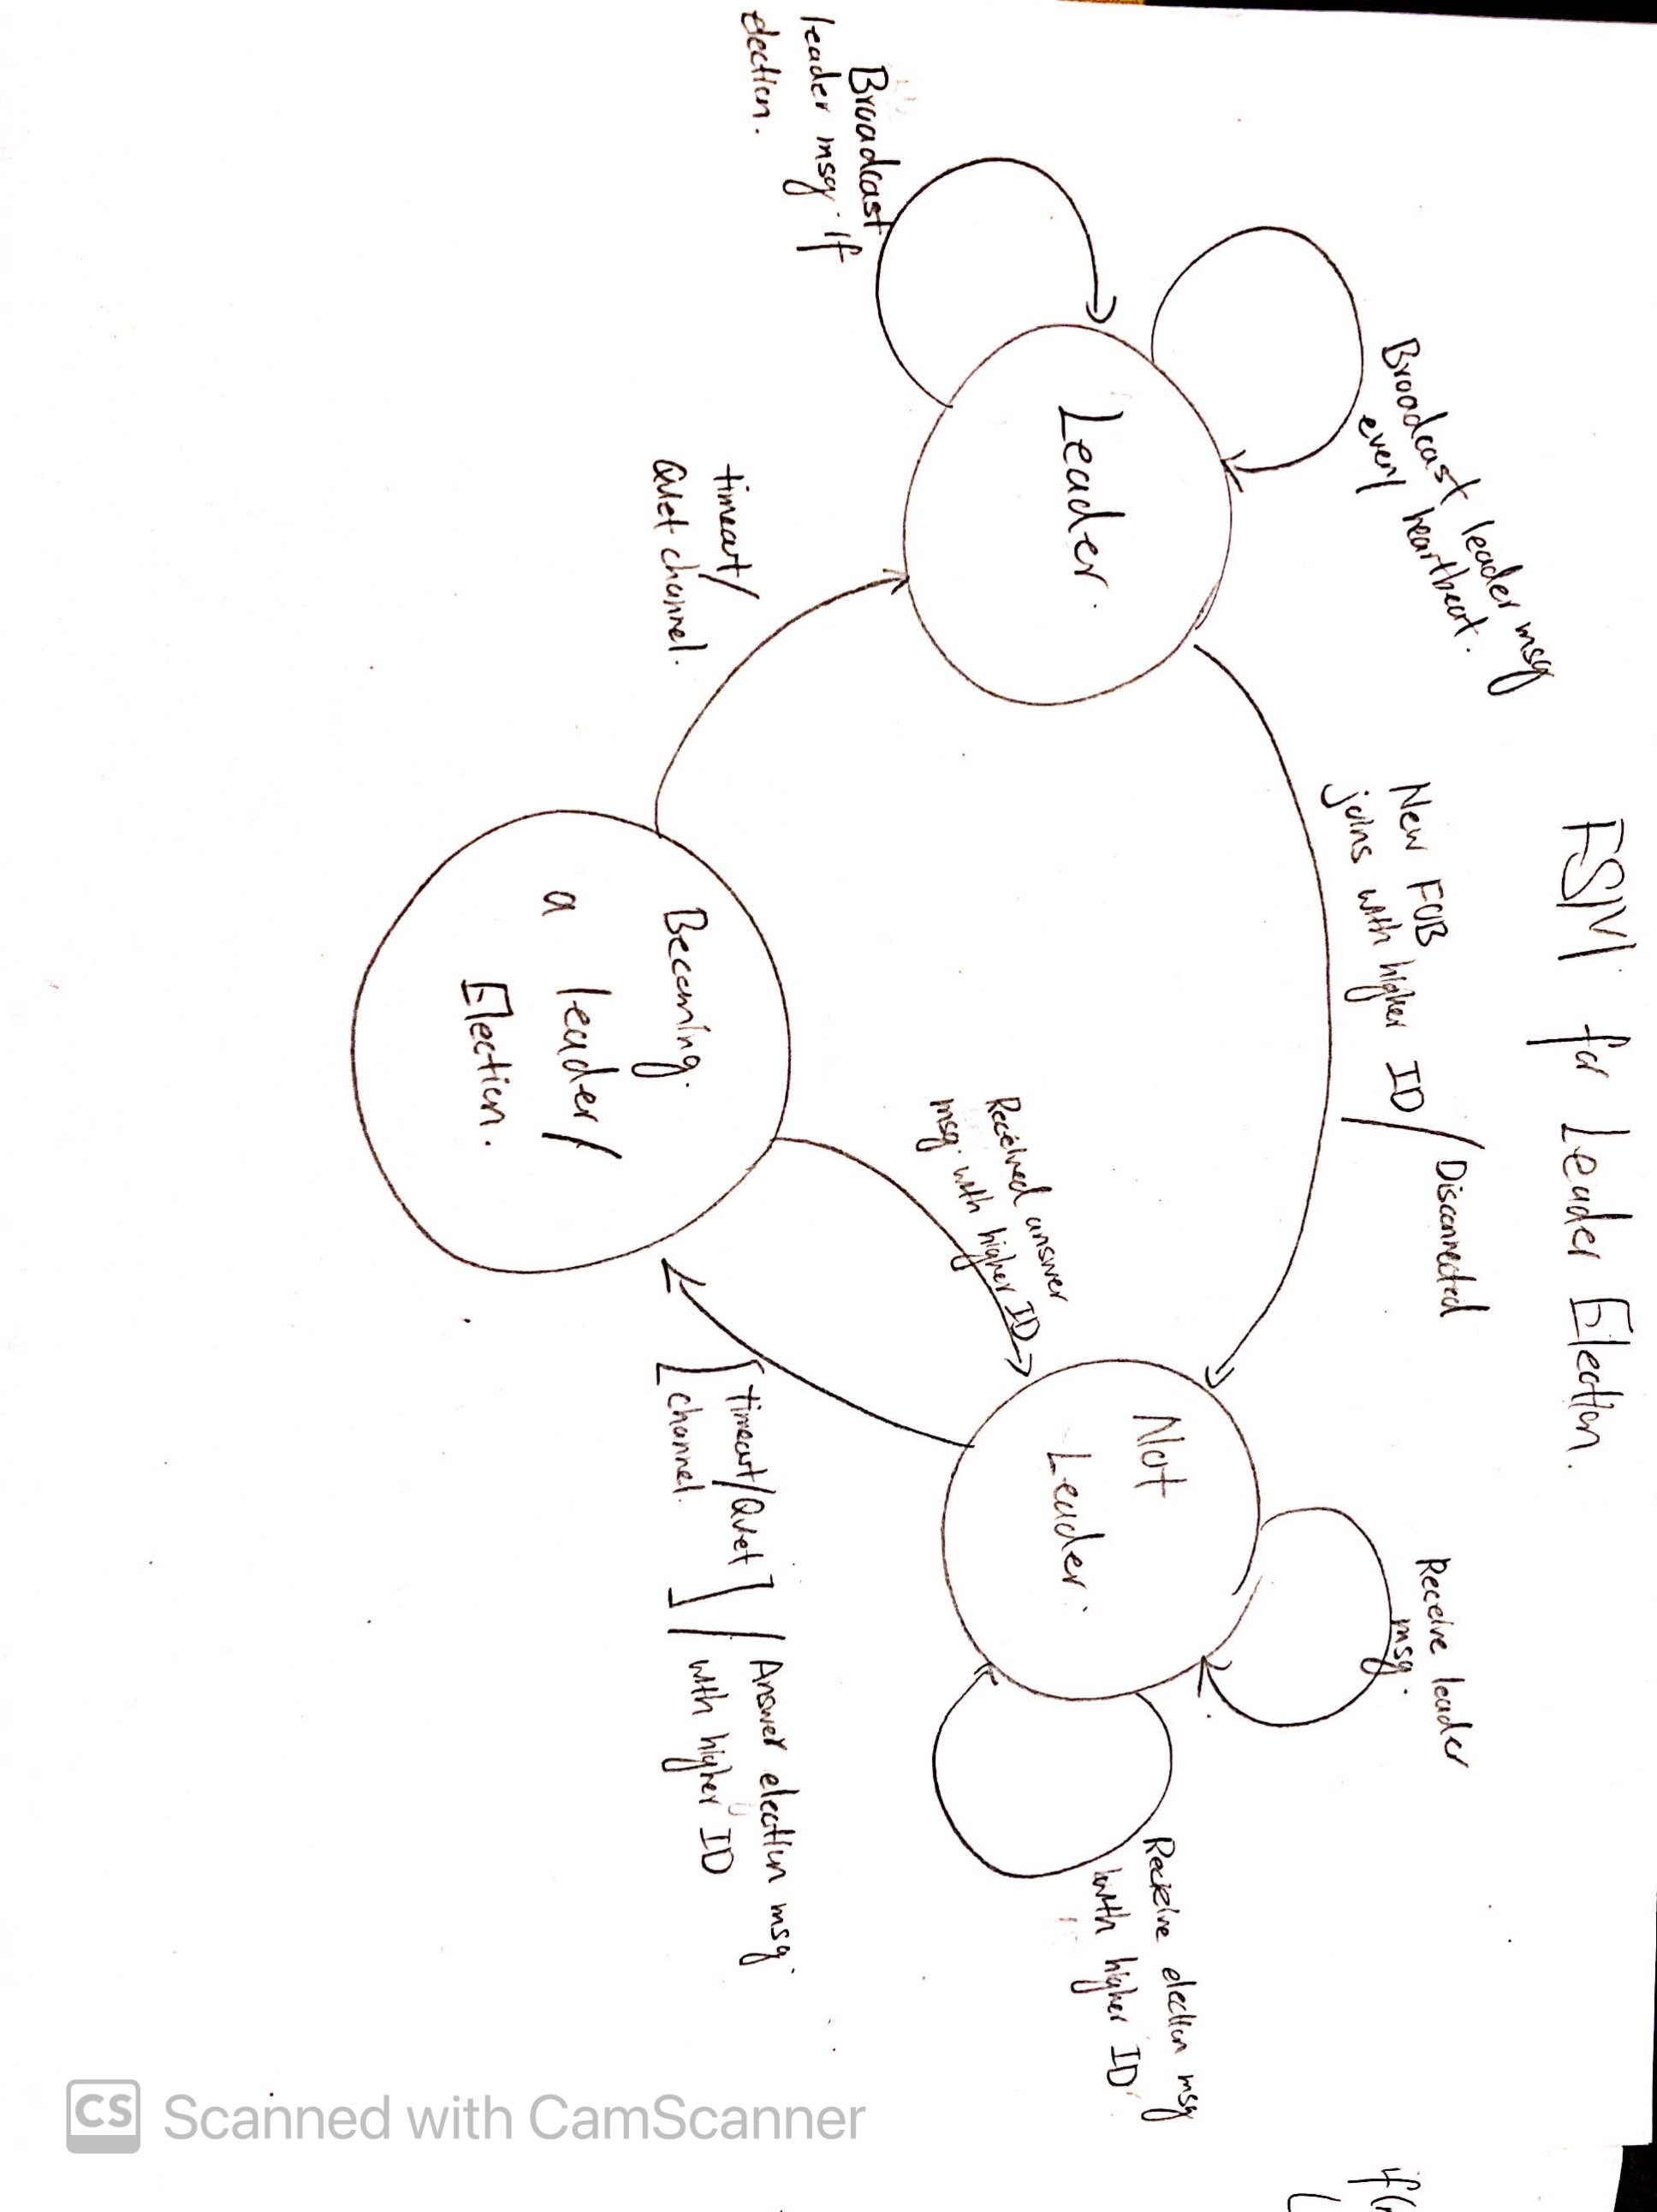 FSM for Leader Election.
Broadcast leader msg
every heartbeat.
New FOB
joins with higher ID /
Disconnected
Receive leader
msg.
if(
Leader.
Not
Leader.
Recieve election msg
with higher ID
Received answer
msg. with higher ID
Broadcast
leader msg. if
election.
timeout/
Quiet channel.
[timeout/Quiet
channel.] /
Answer election msg
with higher ID
Becoming
a leader/
Election.
CS Scanned with CamScanner